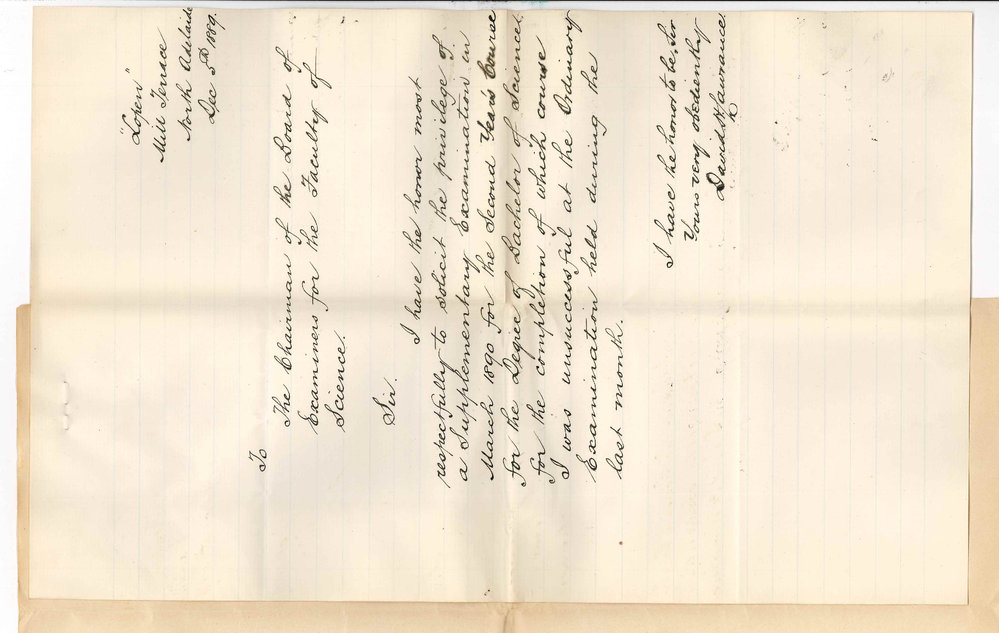 "Lopen"
Mill Terrace
North Adelaide
Dec 5th 1889.
To
The Chairman of the Board of
Examiners for the Faculty of
Science.
Sir.
I have the honor most
respectfully to solicit the privilege of
a Supplementary Examination in
March 1890 for the Second Years Course
for the Degree of Bachelor of Science
for the completion of which course
I was unsuccessful at the Ordinary
Examination held during the
last month.
I have the honor to be, Sir
Yours very obediently
David H Lawrance